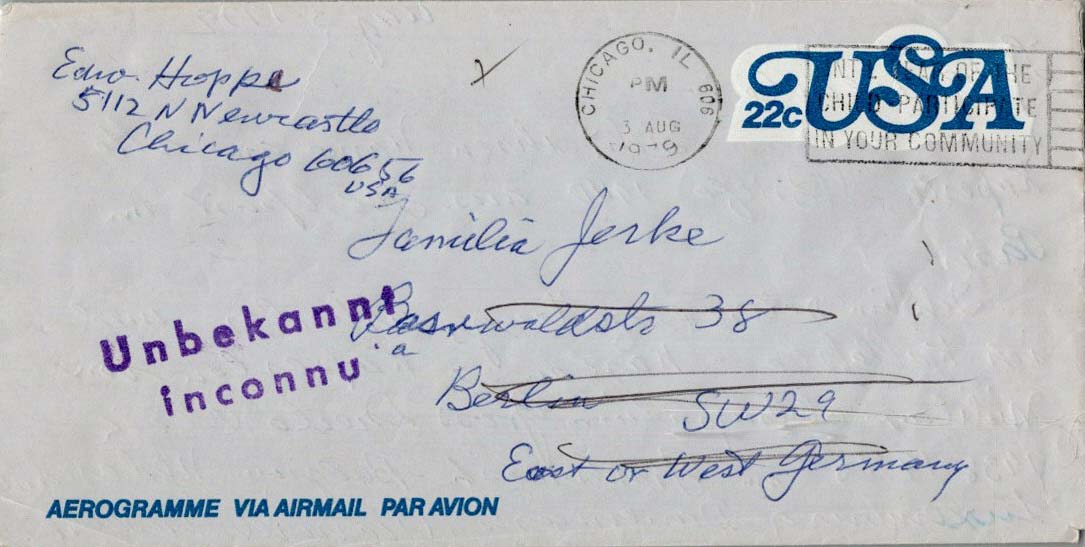 Edw. Hoppe
5112 N Newcastle
Chicago 60656
USA
CHICAGO, IL 606
PM
3 AUG
1979
USA
22c
INT'L YEAR OF THE
CHILD PARTICIPATE
IN YOUR COMMUNITY
Familia Jerke
38
a
Berlin SW29
East or West Germany
Unbekannt
inconnu
AEROGRAMME VIA AIRMAIL PAR AVION